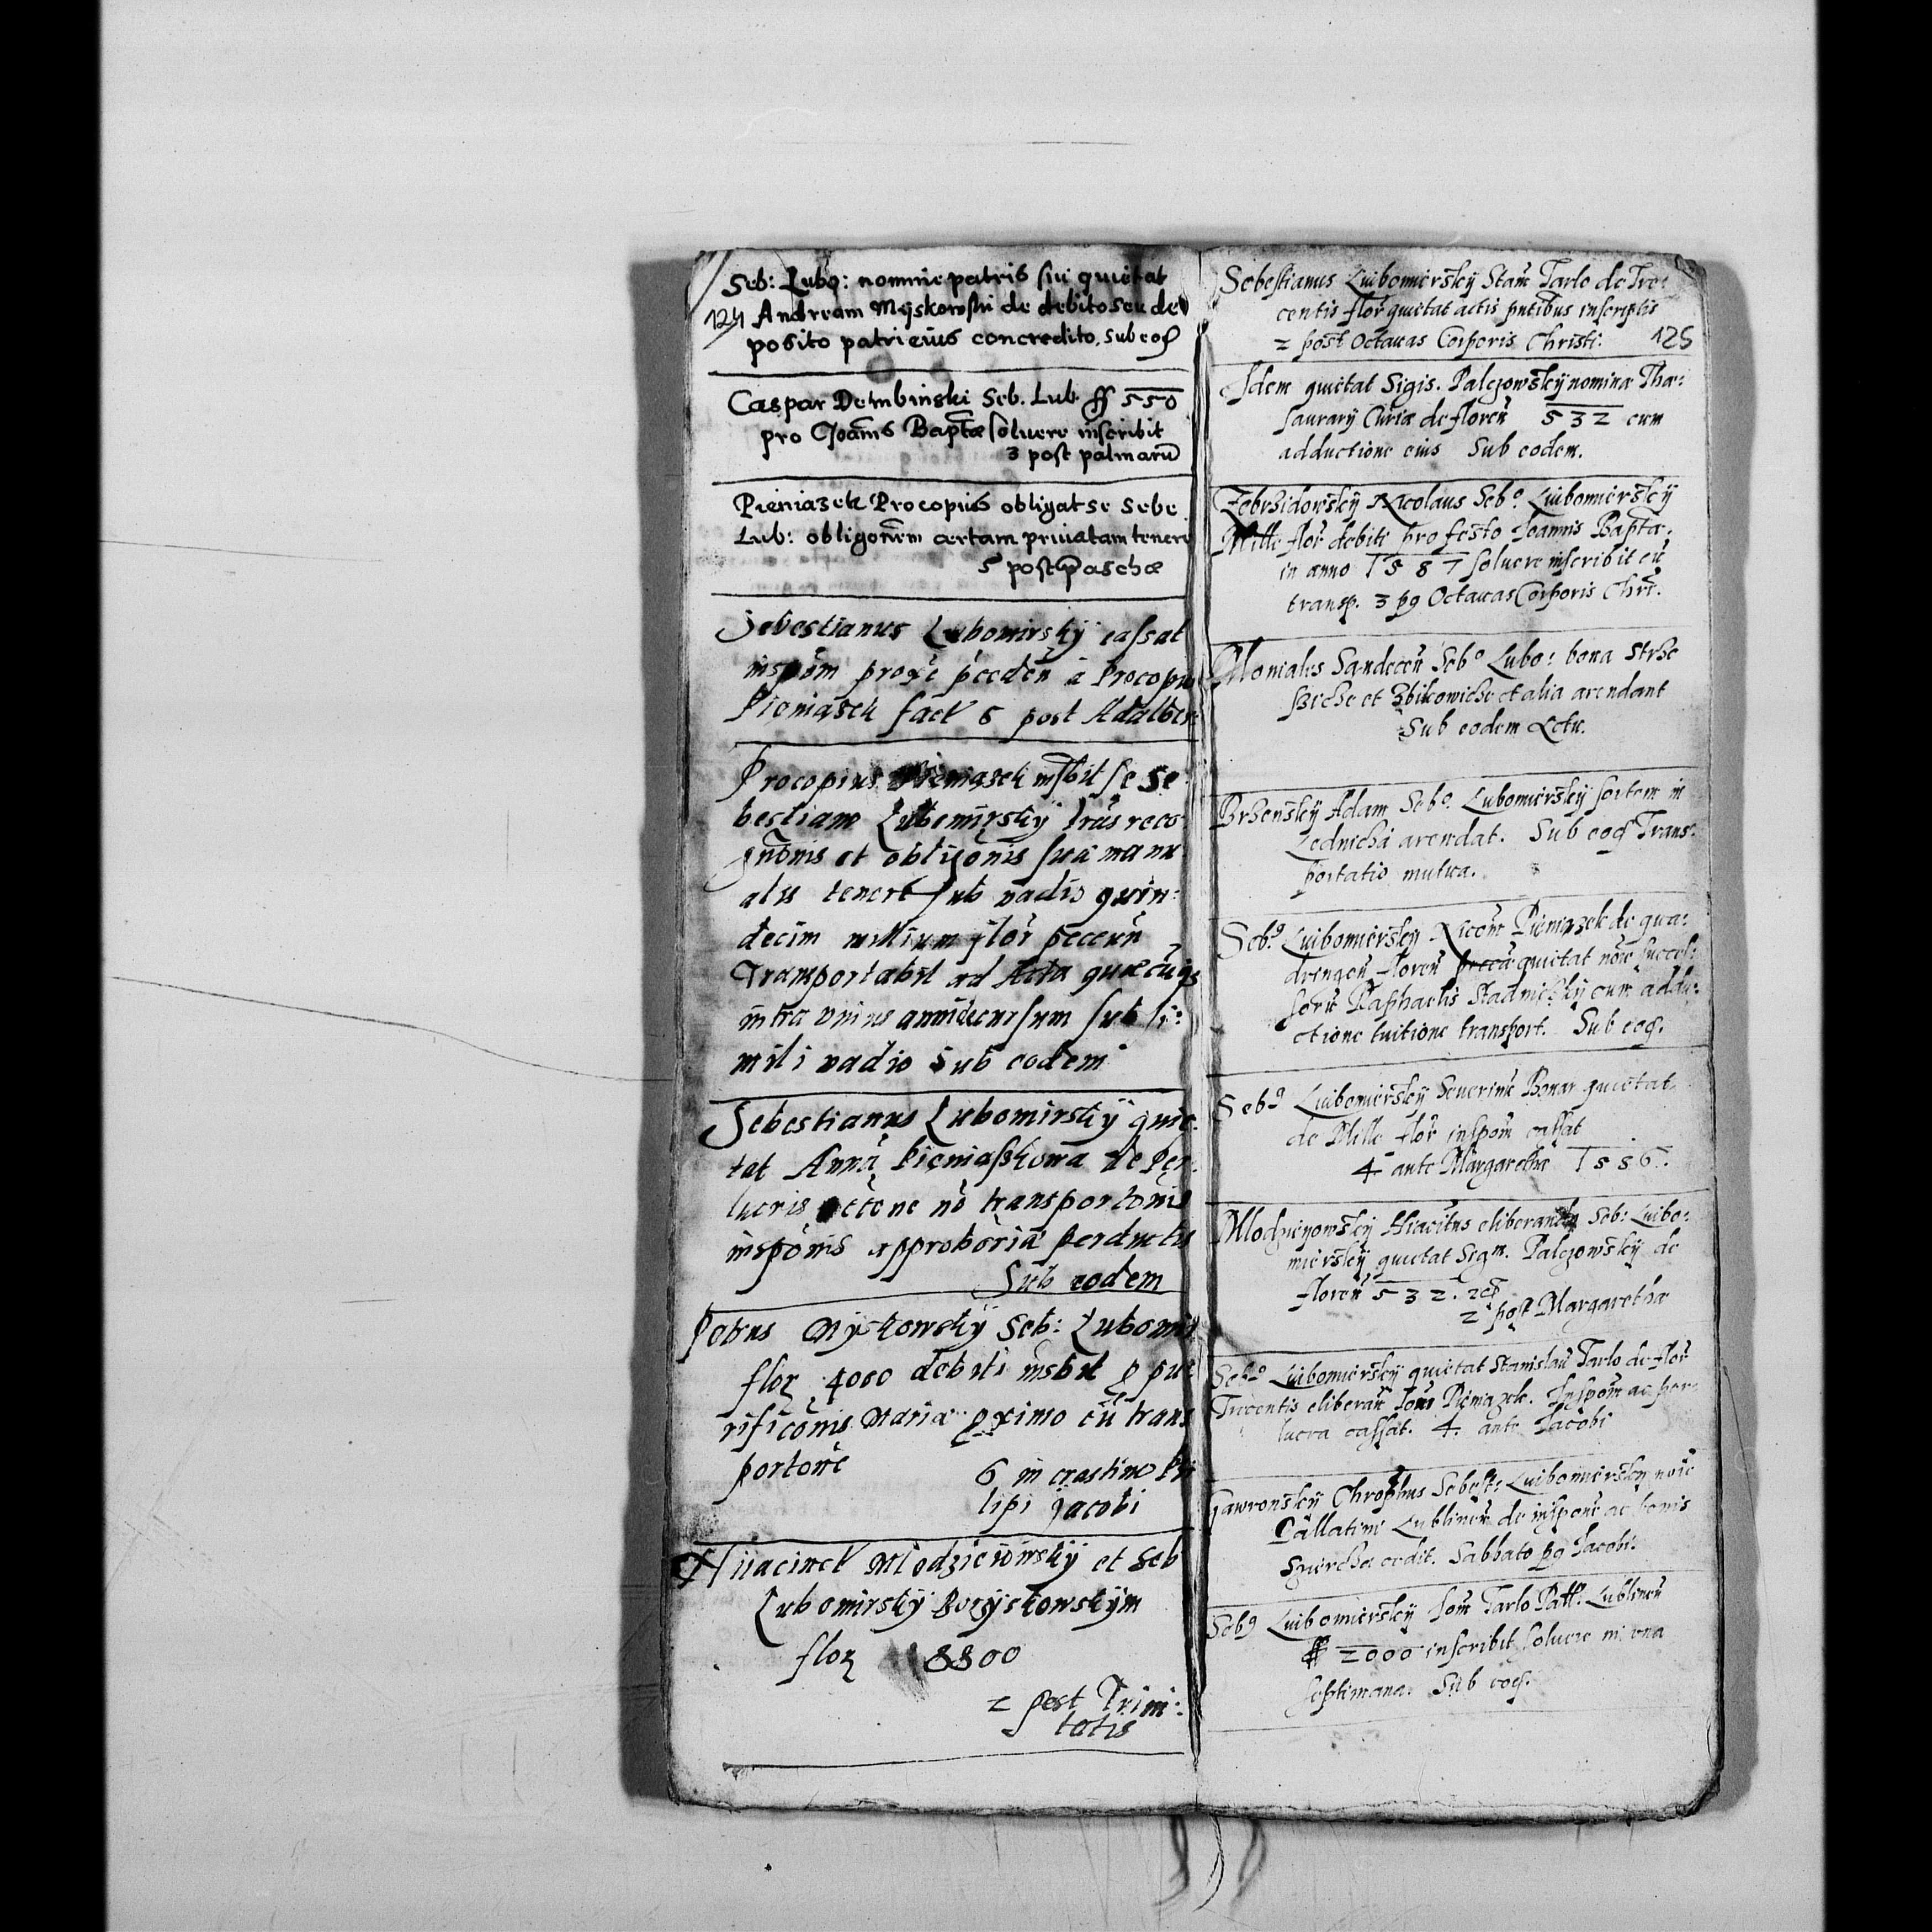 Seb: Lubo: nomine patris sui quietat
124 Andream Myskowski de debito seu de
posito patri eius concredito. sub eoď
Caspar Dembinski Seb. Lub. ff 550
pro Joānis Baptæ soluere inscribit
3 post palmarū
Pieniazek Procopius obligat se Sebe
Lub: obligōnem certam priuatam tenere
5 post paschæ
Sebestianus Lubomirskÿ cassat
inspōm proxe pcedeñ a Procopiu
Pieniązek fact 6 post Adalber
Procopius Pieniązek insbit se Se
bestiano Lubomirskÿ lrās reco
gnōnis et obligōnis sua manu
alis tenere sub vadio quin:
decim millium flor peccuñ
Transportabit ad Acta quæcūqz
intra vnius anni decursum sub si:
mili vadio sub eodem
Sebestianus Lubomirskÿ quie:
tat Annā Pieniąskowa de per
lucris octōne nō transportōnis
inspōnis approboria perductis
Sub eodem
Petrus Myskowskÿ Seb: Lubomir
flor 4000 debiti insbit p pu
rificōnis Mariæ pximo cū trans
portōne 6 in crastino Phi
lipi Jacobi
Hiiacinct Mlodzieiowskÿ et Seb
Lubomirskÿ Boryskowskÿm
flor 8800
2 post Trini:
tatis
Sebestianus Luibomierskÿ Stañ Tarlo de Tre:
centis flor quietat actis pntibus inscriptis
2 post Octauas Corporis Christi. 125
Idem quietat Sigis. Palczowskÿ nomine The:
saurarÿ Curiæ de floreñ 532 cum
adductione eius Sub eodem.
Zebrzidowskÿ Nicolaus Sebo. Luibomierskÿ
Mille flor debiti pro festo Joannis Baptæ.
in anno 1587 soluere inscribit cū
transp. 3 pq Octauas Corporis Chri.
Moniales Sandeceñ Sebo Lubo: bona Strze
szicze et Zbikowicze et alia arendant
Sub eodem Actu.
Brzenskÿ Adam Sebo. Lubomierskÿ sortem in
Lednicha arendat. Sub eoď Trans:
portatio mutua.
Seb9. Luibomierskÿ Nicoñ Pieniązek de qua:
dringeñ floreñ quietat noie succes:
sorū Raphaelis Stadniczkÿ cum addu:
ctione tuitione transport. Sub eoď.
Seb9 Luibomierskÿ Seuerinū Bonar quietat
de Mille flor inspom cassat
4. ante Margarethæ 1586.
Mlodzieyowskÿ Hiacitus eliberandū Seb: Luibo:
mierskÿ quietat Sigm. Palczowskÿ de
floreñ 532. rec
2 post Margarethæ
Seb9 Luibomierskÿ quietat Stanislaū Tarlo de flor
Trecentis eliberañ Joañ Pieniązek. Inspom ac per
lucra cassat. 4. ante Jacobi
Gawronskÿ Chrophus Sebest: Luibomierskÿ noie
Pallatini Lublineñ de inspone ac bonis
cedit. Sabbato pq Jacobi.
Seb9 Luibomierskÿ Joañ Tarlo Patt. Lublineñ
ff 2000 inscribit soluere in vna
septimana. Sub eoď.